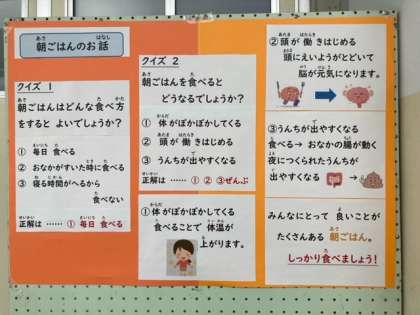 朝ごはんのお話
クイズ 1
朝ごはんはどんな食べ方
をすると よいでしょうか？
① 毎日 食べる
② おなかがすいた時に食べる
③ 寝る時間がへるから
食べない
正解は …… ① 毎日 食べる
クイズ 2
朝ごはんを食べると
どうなるでしょうか？
① 体がぽかぽかしてくる
② 頭が働きはじめる
③ うんちが出やすくなる
正解は …… ① ② ③ぜんぶ
①体がぽかぽかしてくる
食べることで 体温が
上がります。
②頭が働きはじめる
頭にえいようがとどいて
脳が元気になります。
③うんちが出やすくなる
食べる→ おなかの腸が動く
夜につくられたうんちが
出やすくなる
みんなにとって 良いことが
たくさんある 朝ごはん。
しっかり食べましょう！